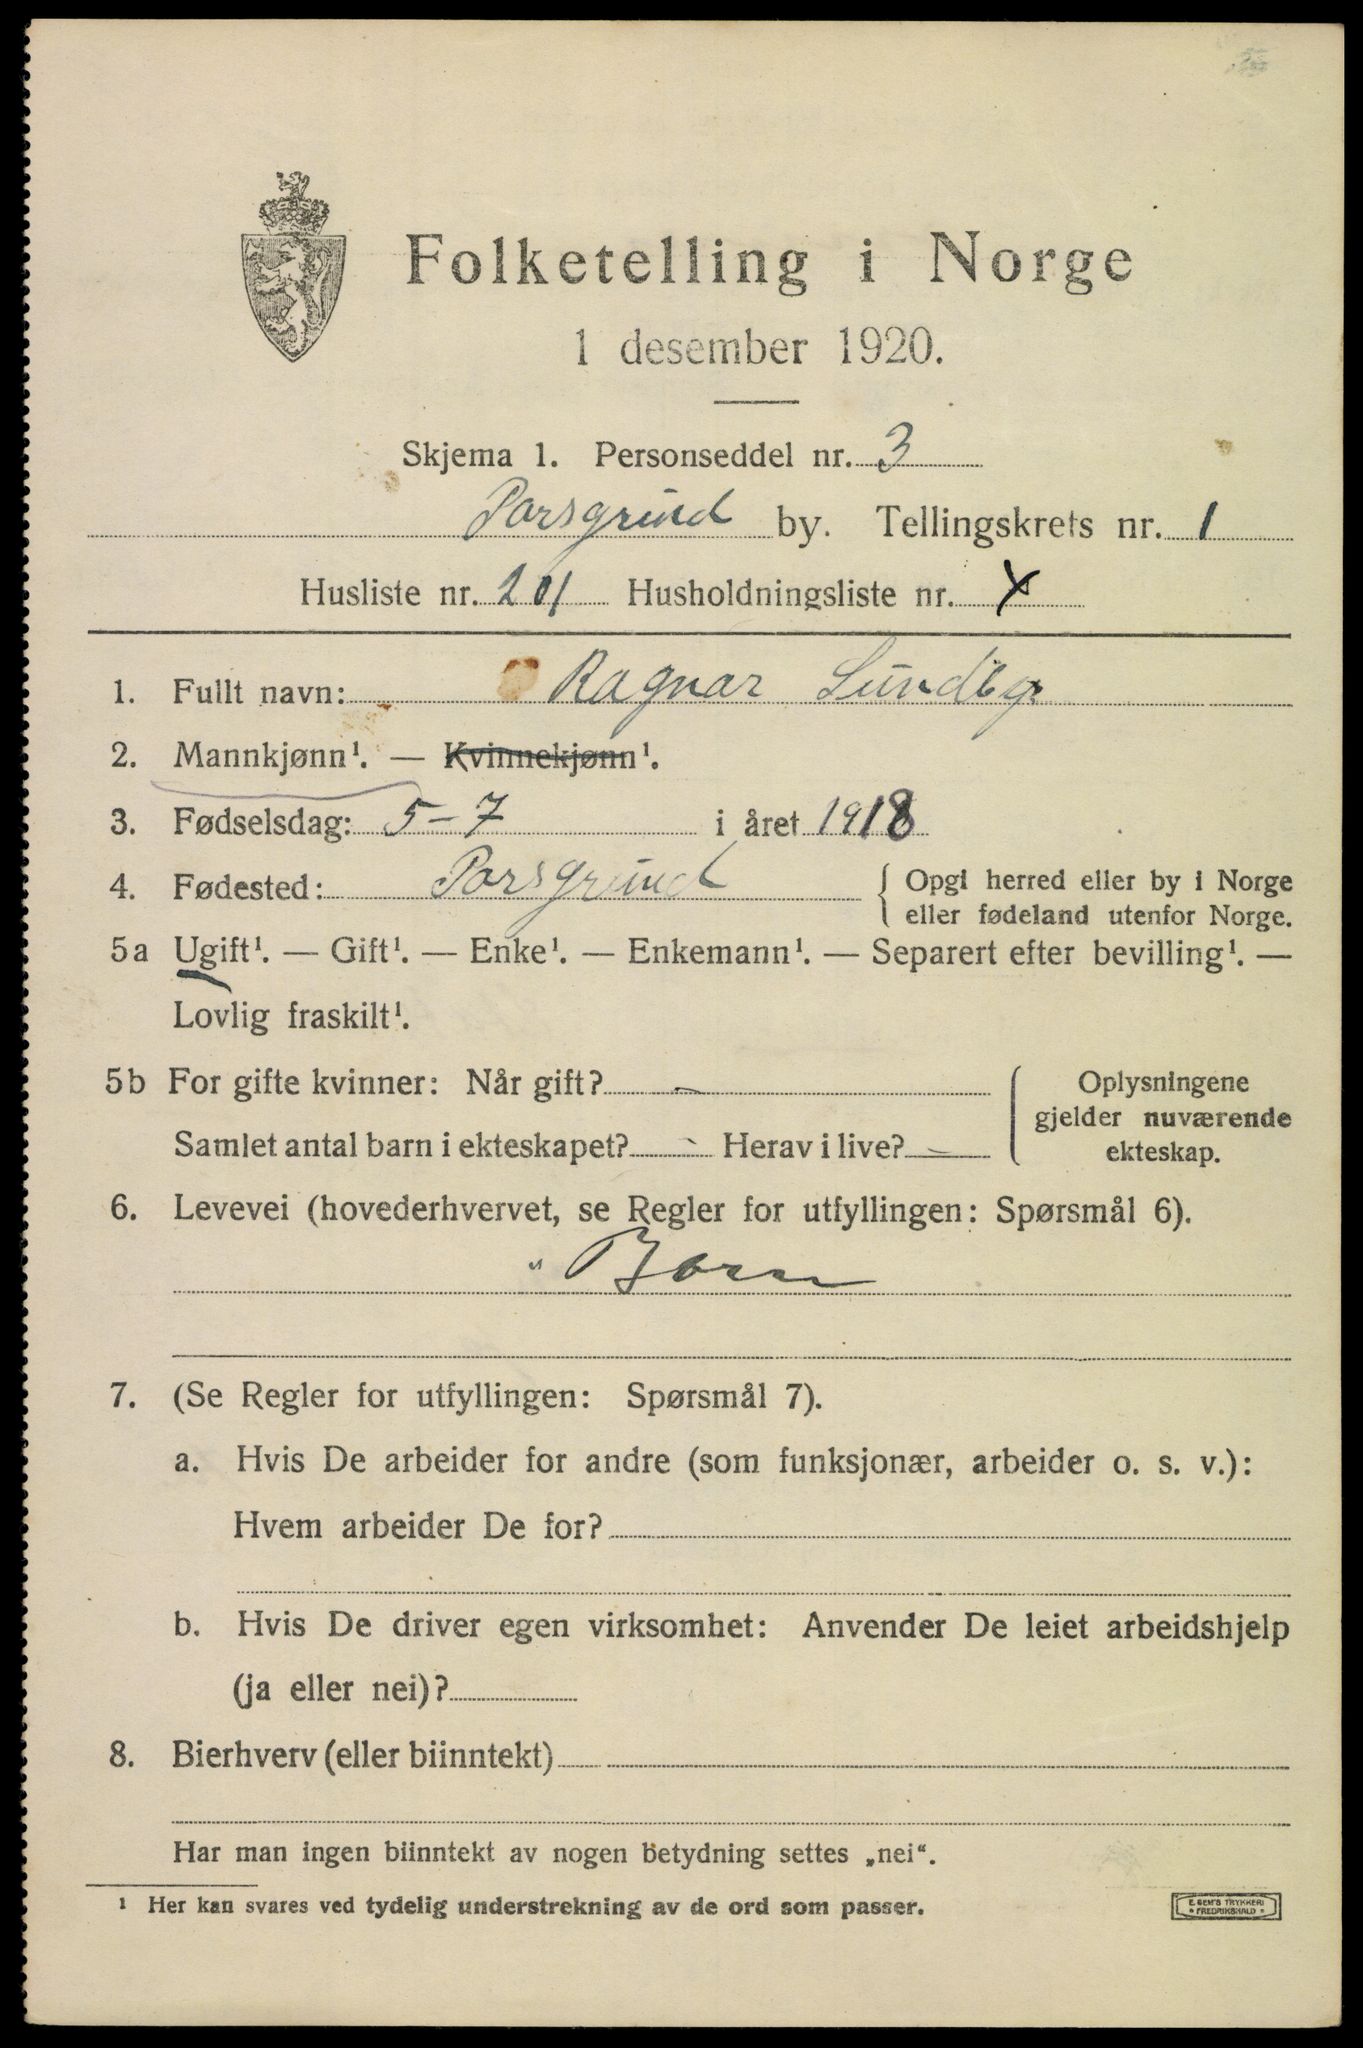 Folketelling i Norge
1 desember 1920.
Skjema 1. Personseddel nr. 3
Porsgrund by. Tellingskrets nr. 1
Husliste nr. 201 Husholdningsliste nr. X
1. Fullt navn: Ragnar Lundbg.
2. Mannkjønn¹. — Kvinnekjønn¹.
3. Fødselsdag: 5-7 i året 1918
4. Fødested: Porsgrund { Opgi herred eller by i Norge
eller fødeland utenfor Norge.
5a Ugift¹. — Gift¹. — Enke¹. — Enkemann¹. — Separert efter bevilling¹. —
Lovlig fraskilt¹.
5b For gifte kvinner: Når gift? -
Samlet antal barn i ekteskapet? - Herav i live? -
Oplysningene
gjelder nuværende
ekteskap.
6. Levevei (hovederhvervet, se Regler for utfyllingen: Spørsmål 6).
" Barn
7. (Se Regler for utfyllingen: Spørsmål 7).
a. Hvis De arbeider for andre (som funksjonær, arbeider o. s. v.):
Hvem arbeider De for?
b. Hvis De driver egen virksomhet: Anvender De leiet arbeidshjelp
(ja eller nei)?
8. Bierhverv (eller biinntekt)
Har man ingen biinntekt av nogen betydning settes „nei“.
¹ Her kan svares ved tydelig understrekning av de ord som passer.
E. SEM'S TRYKKERI
* FREDRIKSHALD *